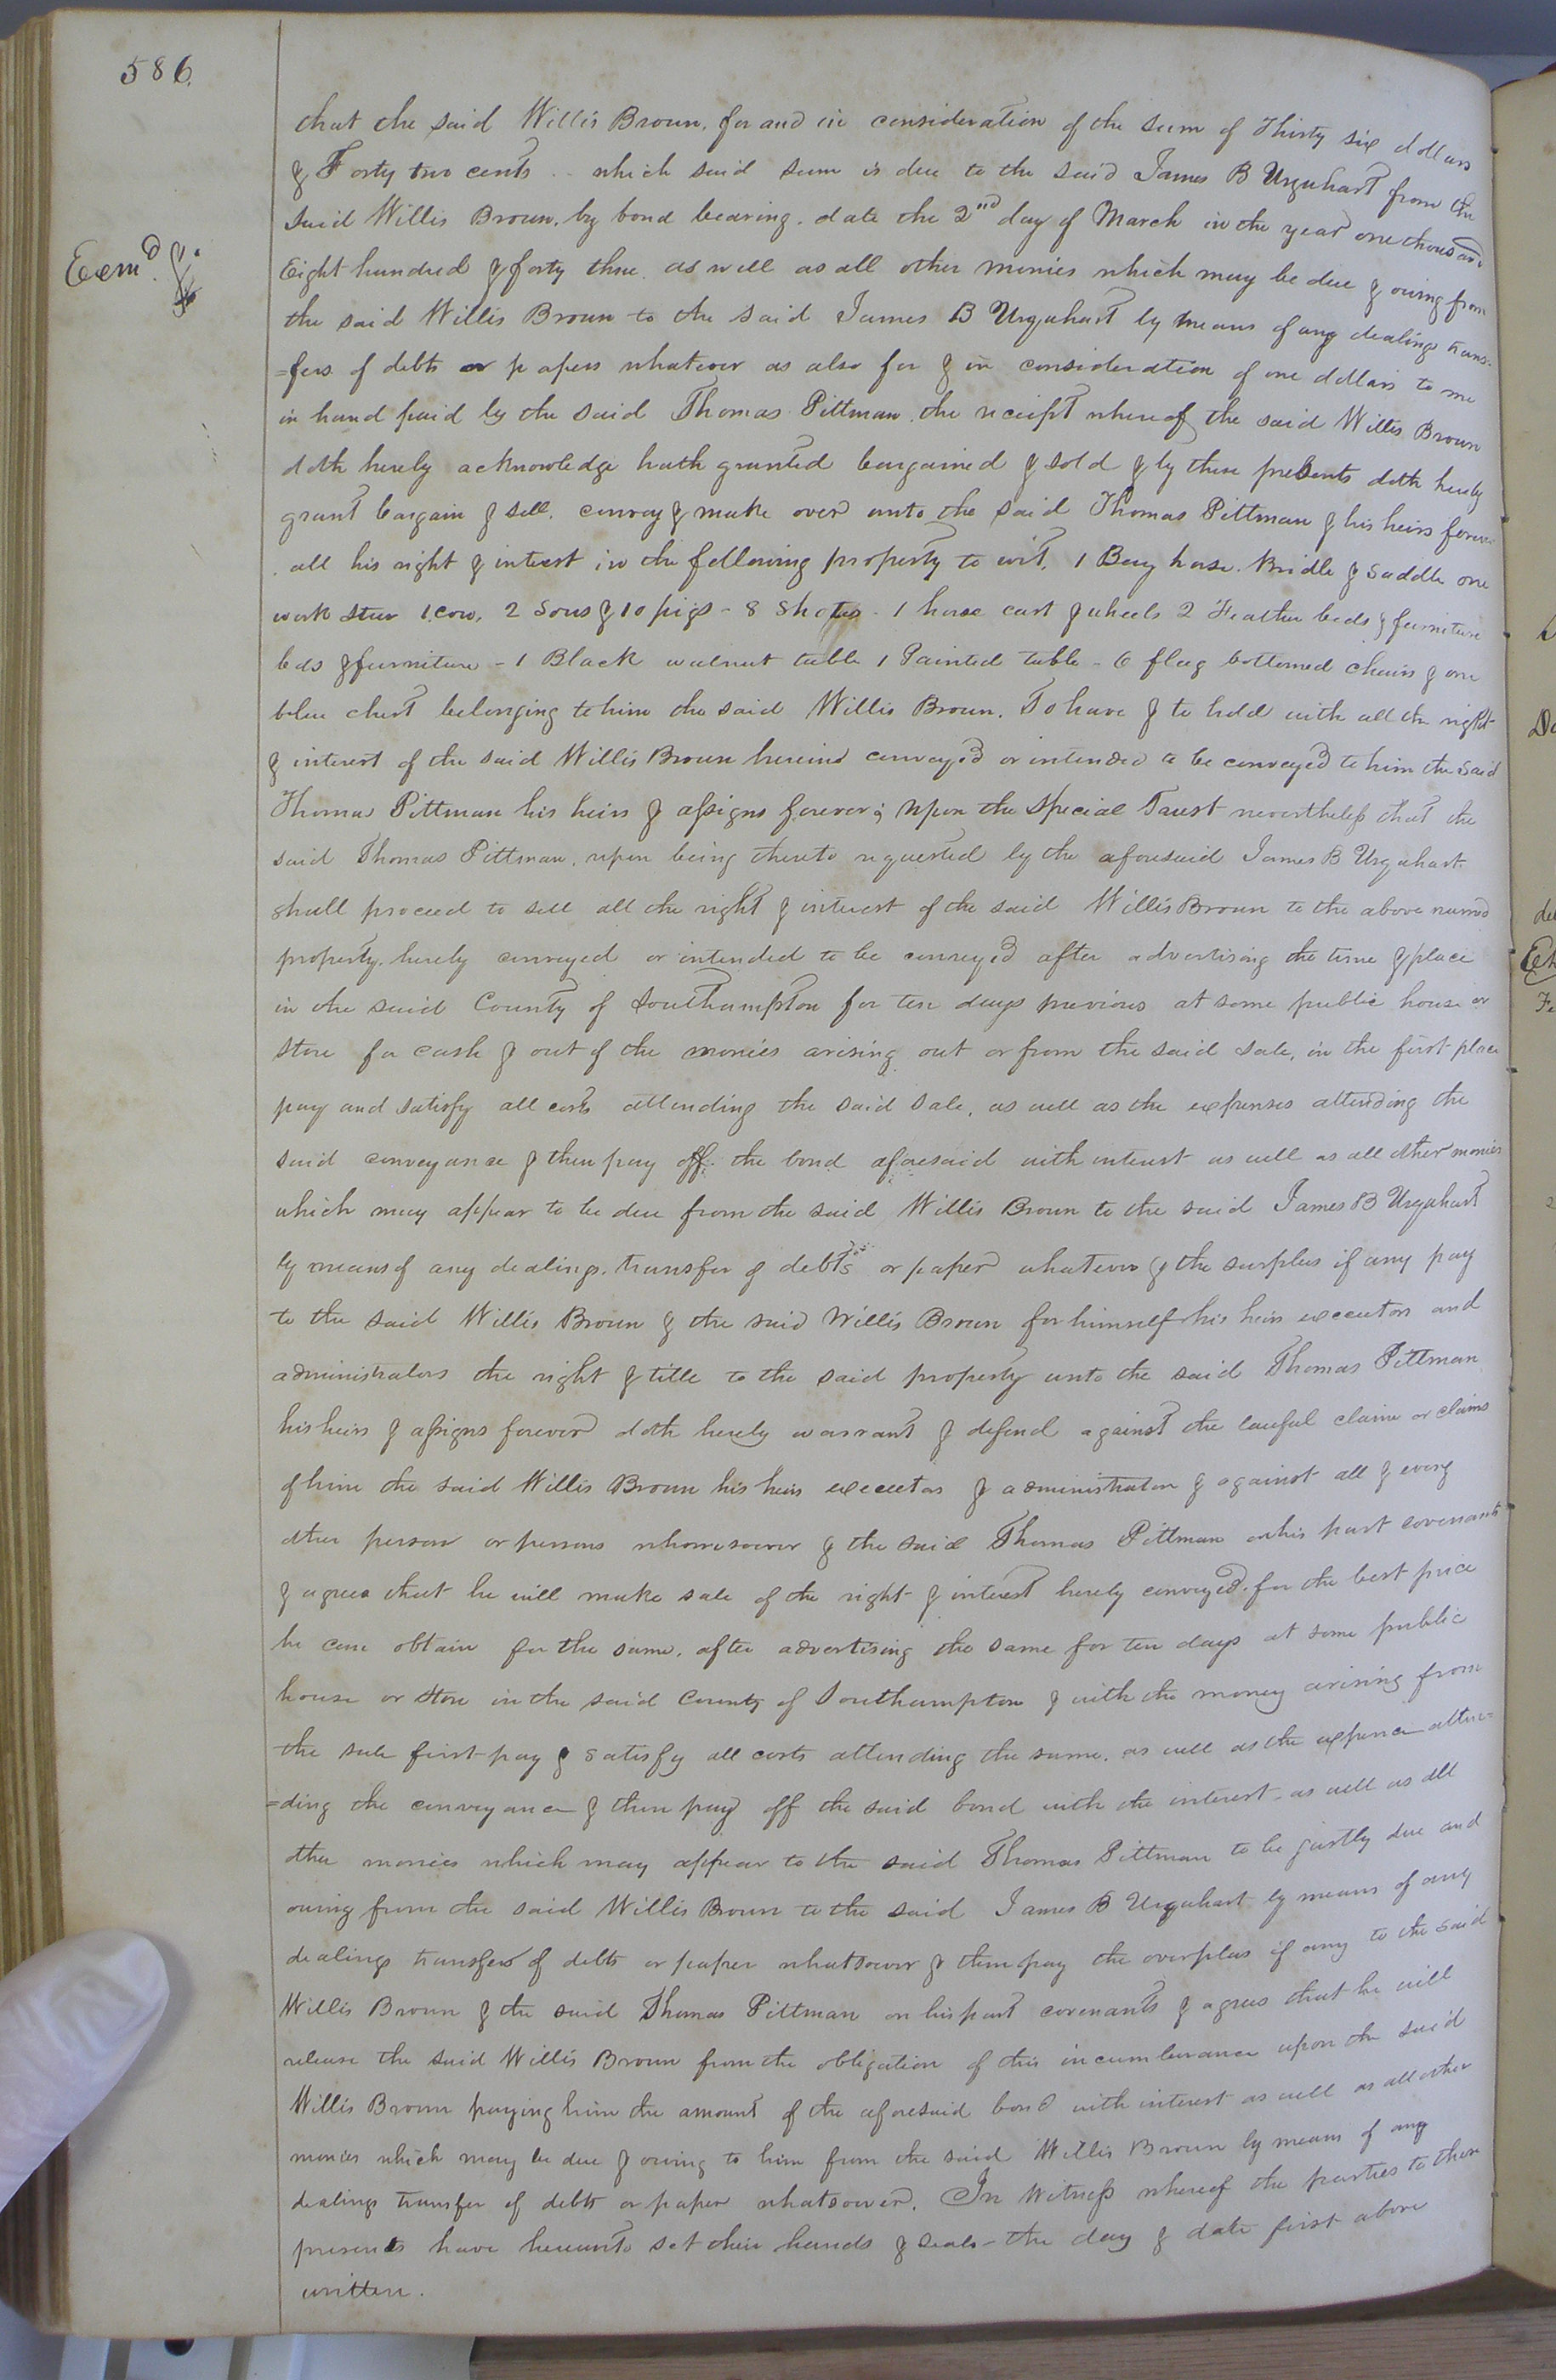 586.
that the said Willis Broun, for and in consideration of the sum of Thirty six dollars
& Forty two cents .. which said sum is due to the said James B Urquhart from the
said Willis Broun, by bond bearing. date the 2nd day of March in the year one thousand
Exmd.
Eight hundred & forty three. as well as all other monies which may be due & owing from
the said Willis Broun to the said James B Urquhart by means of any dealings trans-
=fers of debts or papers whatever as also for & in consideration of one dollars to me
in hand paid by the said Thomas Pittman. the receipt whereof the said Willis Broun
doth hereby acknowledge hath granted bargained & sold & by these presents doth hereby
grant bargain & sell. convey & make over unto the said Thomas Pittman & his heirs forever
all his right & interest in the following property to wit, 1 Bay horse. Bridle & Saddle one
work steer 1 cow, 2 Sows & 10 pigs - 8 Shotes - 1 horse cart & wheels 2 Feather beds & furniture
beds & furniture - 1 Black walnut table 1 Painted table - 6 flag bottomed chairs & one
blue chest belonging to him the said Willis Broun. To have & to hold with all the right
& interest of the said Willis Broun herein conveyed or intended to be conveyed to him the said
Thomas Pittman his heirs & assigns forever; Upon the Special Trust nevertheless that the
said Thomas Pittman, upon being thereto requested by the aforesaid James B Urquhart.
shall proceed to sell all the right & interest of the said Willis Broun to the above named
property. hereby conveyed or intended to be conveyed after advertising the time & place
in the said County of Southampton for ten days previous at some public house or
store for cash & out of the monies arising out or from the said sale, in the first place
pay and satisfy all costs attending the said sale, as well as the expenses attending the
said conveyance & then pay off. the bond aforesaid with interest as well as all other monies
which may appear to be due from the said Willis Broun to the said James B Urquhart
by means of any dealings. transfer of debts or paper whatever & the surplus if any pay
to the said Willis Broun & the said Willis Broun for himself his heirs executors and
administrators the right & title to the said property unto the said Thomas Pittman
his heirs & assigns forever doth hereby warrant & defend against the lawful claim or claims
of him the said Willis Broun his heirs executors & administrators & against all & every
other person or persons whomsoever & the said Thomas Pittman on his part covenants
& agrees that he will make sale of the right & interest hereby conveyed. for the best price
he can obtain for the same. after advertising the same for ten days at some public
house or store in the said County of Southampton & with the money arising from
the sale first pay & satisfy all costs attending the same. as well as the expence atten=
=ding the conveyance & then pay off the said bond with the interest - as well as all
other monies which may appear to the said Thomas Pittman to be justly due and
owing from the said Willis Broun to the said James B Urquhart by means of any
dealings transfers of debts or paper whatsoever & then pay the overplus if any to the said
Willis Broun & the said Thomas Pittman on his part covenants & agrees that he will
release the said Willis Broun from the obligation of this incumberance upon the said
Willis Broun paying him the amount of the aforesaid bond with interest as well as all other
monies which may be due & owing to him from the said Willis Broun by means of any
dealings transfer of debts or paper whatsoever. In Witness whereof the parties to these
presents have hereunto set their hands & seals - the day & date first above
written.